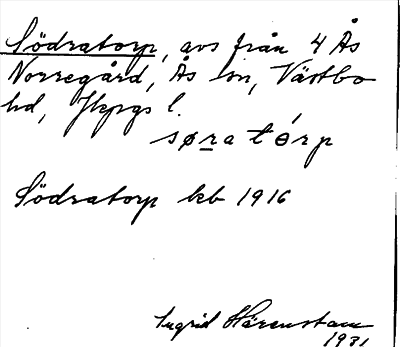 Södratorp, avs från 4 Ås
Norregård, Ås sn, Västbo
hd, Jkpgs l.
søratórp
Södratorp kb 1916
Ingrid Härenstam
1931